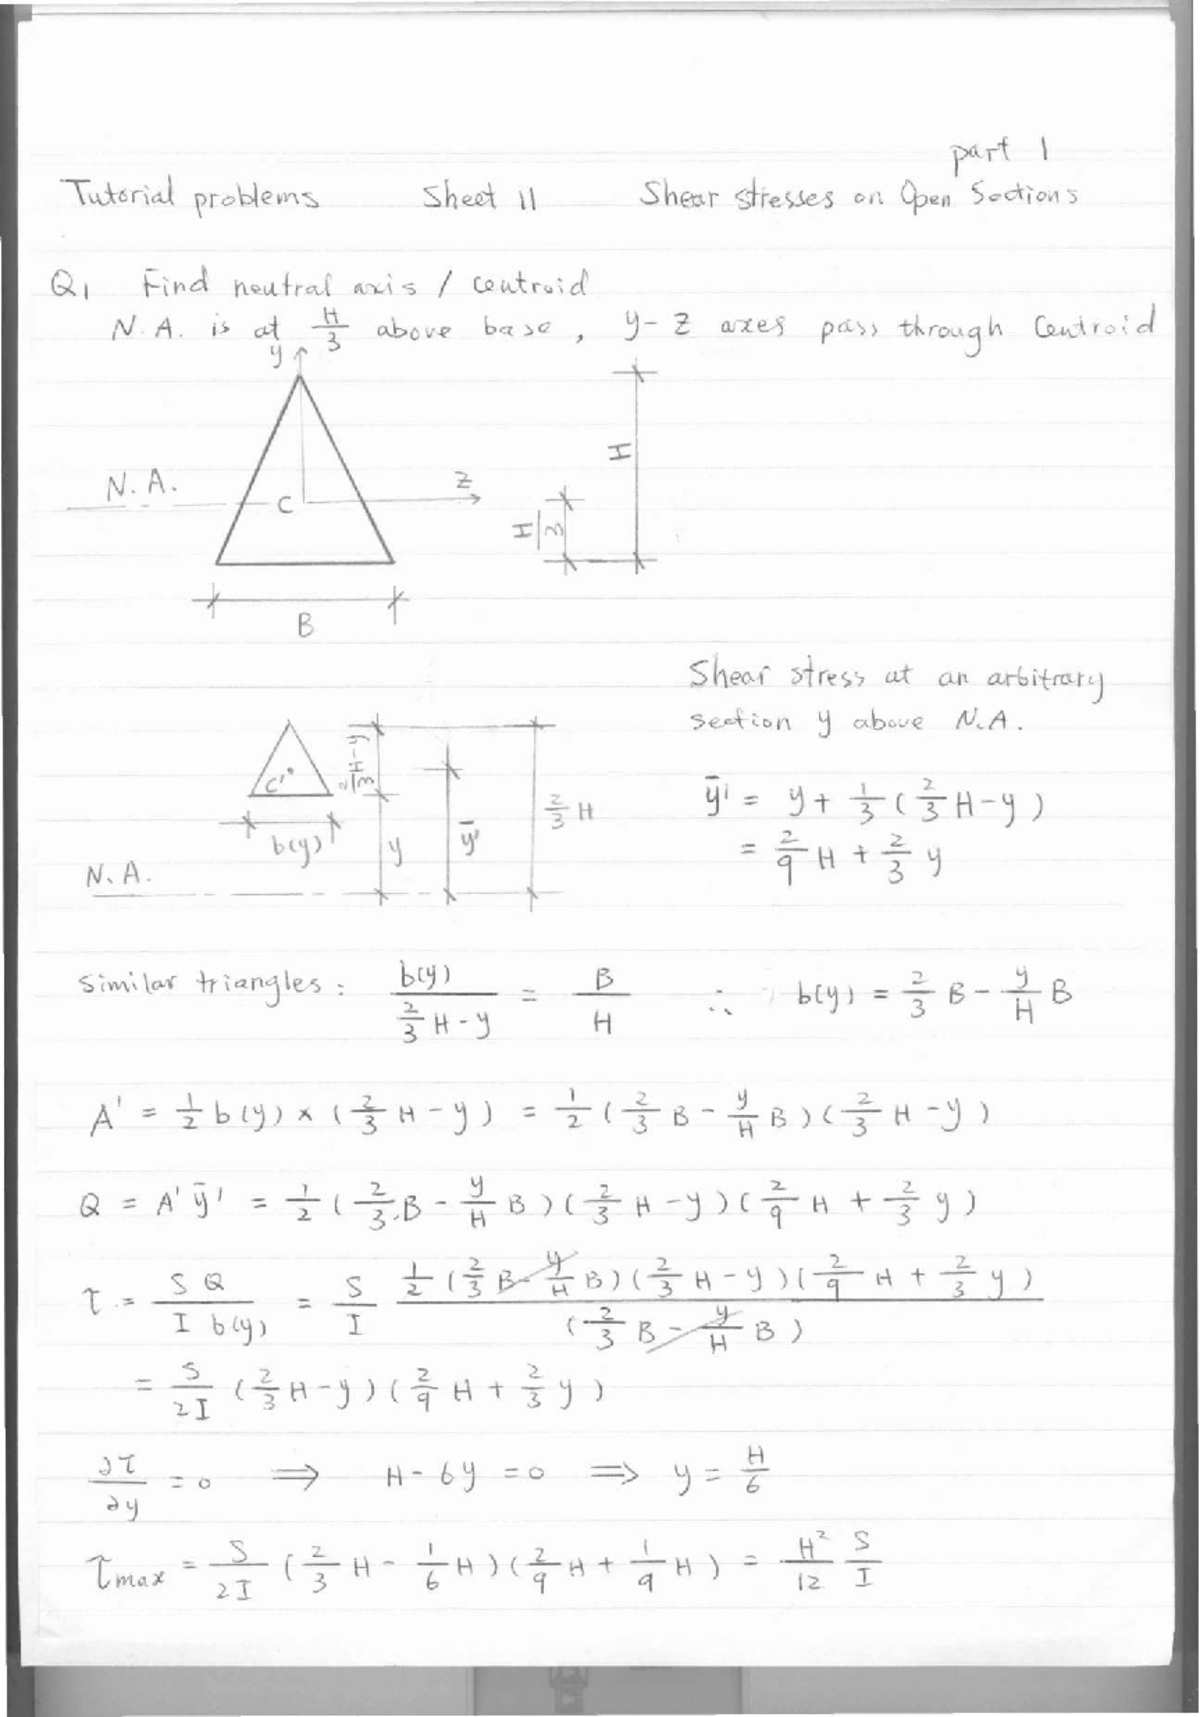 part 1
Tutorial problems Sheet 11 Shear stresses on Open Sections
Q1 Find neutral axis / centroid
N.A. is at H/3 above base, y-z axes pass through Centroid
y
N.A. C z
H
H/3
B
Shear stress at an arbitrary
section y above N.A.
C' 2/3 H-y
b(y) y ȳ' 2/3 H
N.A.
ȳ' = y + 1/3 (2/3 H - y)
= 2/9 H + 2/3 y
Similar triangles: b(y) / (2/3 H - y) = B/H ∴ b(y) = 2/3 B - y/H B
A' = 1/2 b(y) × (2/3 H - y) = 1/2 (2/3 B - y/H B)(2/3 H - y)
Q = A' ȳ' = 1/2 (2/3 B - y/H B)(2/3 H - y)(2/9 H + 2/3 y)
τ = S Q / I b(y) = S/I 1/2 (2/3 B - y/H B)(2/3 H - y)(2/9 H + 2/3 y) / (2/3 B - y/H B)
= S/2I (2/3 H - y)(2/9 H + 2/3 y)
∂τ/∂y = 0 ⇒ H - 6y = 0 ⇒ y = H/6
τmax = S/2I (2/3 H - 1/6 H)(2/9 H + 1/9 H) = H²/12 S/I